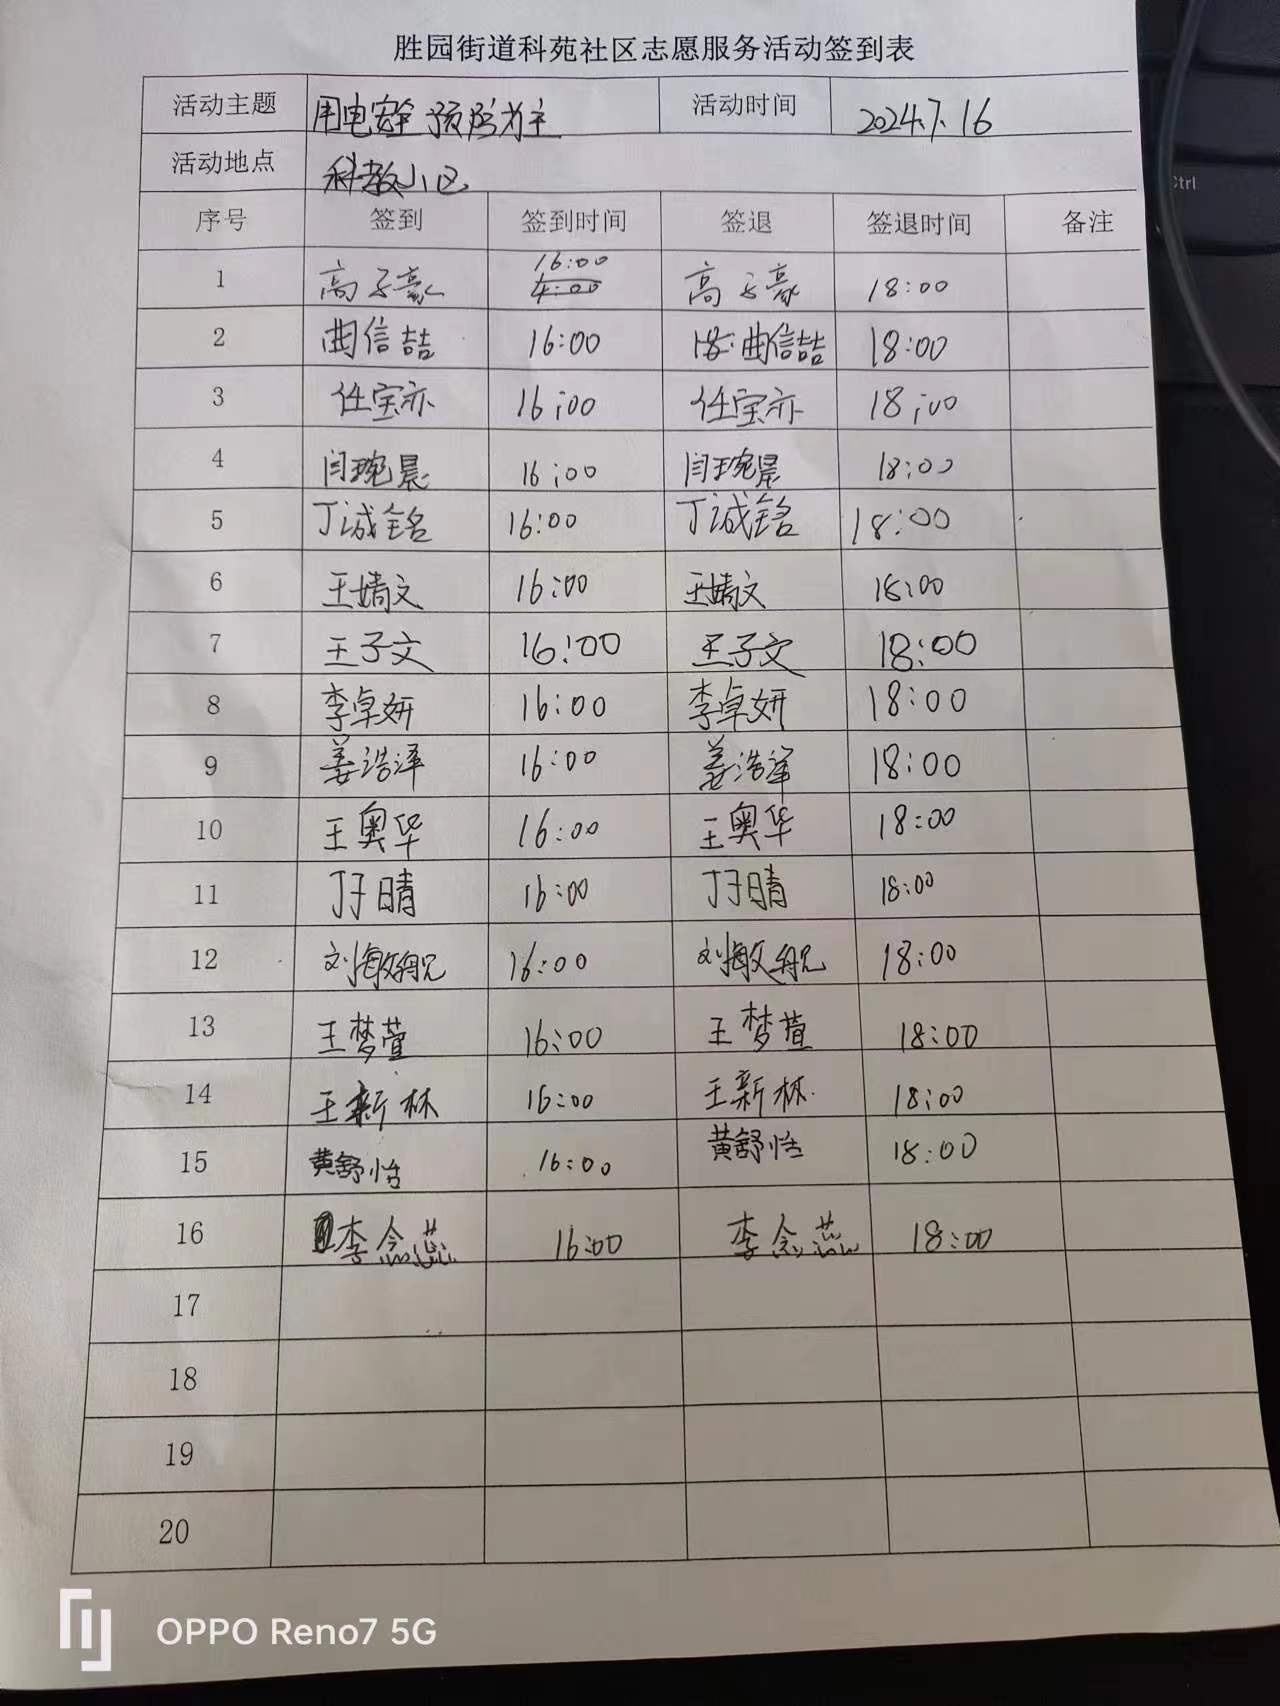 胜园街道科苑社区志愿服务活动签到表
活动主题 用电安全 预防为主 活动时间 2024.7.16
活动地点 科教小区
序号 签到 签到时间 签退 签退时间 备注
1 高子豪 16:00 4:00 高子豪 18:00
2 曲信喆 16:00 曲信喆 18:00
3 任宝亦 16:00 任宝亦 18:00
4 闫琬晨 16:00 闫琬晨 18:00
5 丁诚铭 16:00 丁诚铭 18:00
6 王婧文 16:00 王婧文 18:00
7 王子文 16:00 王子文 18:00
8 李卓妍 16:00 李卓妍 18:00
9 姜浩泽 16:00 姜浩泽 18:00
10 王奥华 16:00 王奥华 18:00
11 丁子晴 16:00 丁子晴 18:00
12 刘敏 16:00 刘敏 18:00
13 王梦萱 16:00 王梦萱 18:00
14 王新林 16:00 王新林 18:00
15 黄舒怡 16:00 黄舒怡 18:00
16 李念蕊 16:00 李念蕊 18:00
17
18
19
20
OPPO Reno7 5G
Ctrl